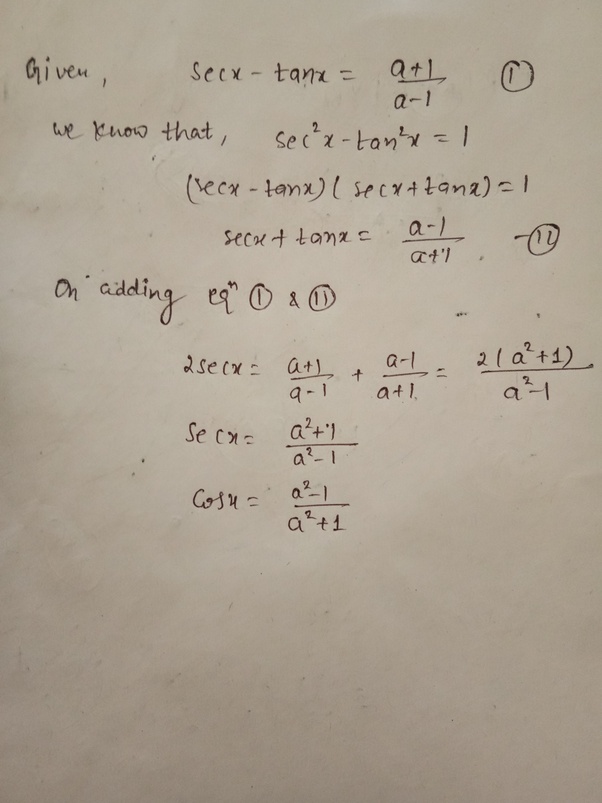 Given, secx - tanx = (a+1)/(a-1) (I)
we know that, sec²x - tan²x = 1
(secx - tanx)(secx + tanx) = 1
secx + tanx = (a-1)/(a+1). -(II)
On adding eqⁿ (I) & (II)
2secx = (a+1)/(a-1) + (a-1)/(a+1) = 2(a²+1)/(a²-1)
Secx = (a²+1)/(a²-1)
Cosx = (a²-1)/(a²+1)